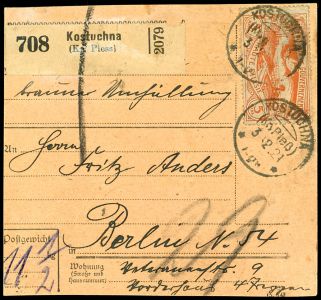 708 Kostuchna
(Kr. Pless)
2079
KOSTUCHNA
KOSTUCHNA
(Kr. Pleß)
3.2.21
brauner Umhüllung
An Herrn
Fritz Anders
Postgewicht
11 1/2
Berlin N. 54
Wohnung
(Straße und
Hausnummer)
Veteranenstr. 9
Vorderhaus 4 Treppen